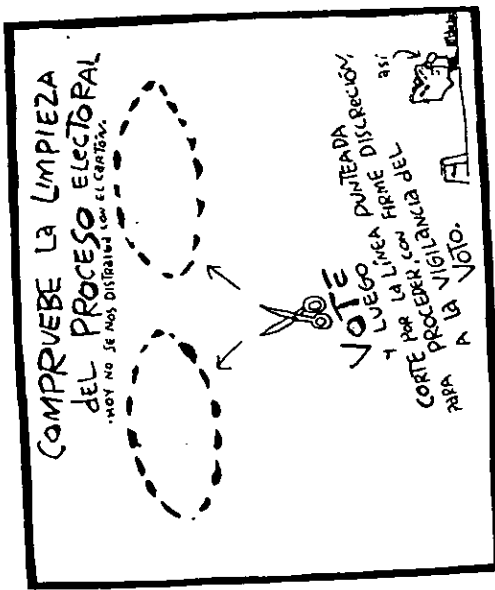 COMPRUEBE LA LIMPIEZA
DEL PROCESO ELECTORAL
HOY NO SE NOS DISTRAIGA CON EL CARTÓN.
VOTE
Y LUEGO
CORTE POR LA LÍNEA PUNTEADA
PARA PROCEDER, CON FIRME DISCRECIÓN,
A LA VIGILANCIA DEL
VOTO.
así